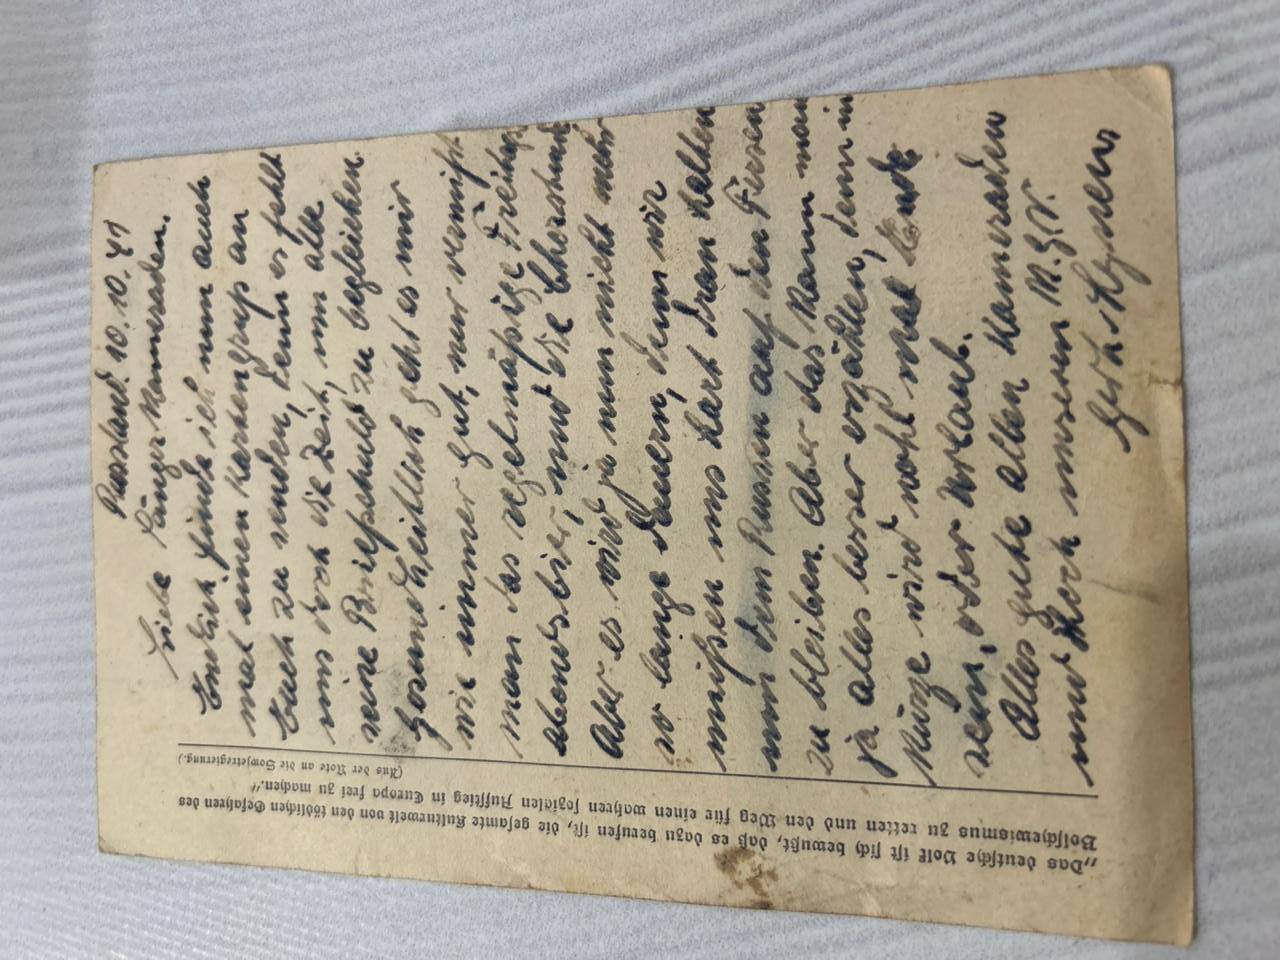 Russland. 10.10.41
Liebe Sängerkameraden.
Endlich finde ich nun auch
mal einen Kartengruß an
Euch zu senden, denn es fehlt
uns doch die Zeit, um alle
seine Briefschuld zu begleichen.
Gesundheitlich geht es mir
wie immer gut, nur vermißt
man das regelmäßige
abendsbier, und die Chorstunde
Aber es wird ja nun nicht mehr
so lange dauern, denn wir
müßen uns hart dran halten
um dem Russen auf den Fersen
zu bleiben. Aber das kann man
ja alles besser erzählen, denn in
Kürze wird wohl mal Ende
sein, oder Urlaub.
Alles gute allen Kameraden
und Hoch unseren M.G.V.
„Das deutsche Volk ist sich bewußt, daß es dazu berufen ist, die gesamte Kulturwelt von den tödlichen Gefahren des
Bolschewismus zu retten und den Weg für einen wahren sozialen Aufstieg in Europa frei zu machen.“
(Aus der Note an die Sowjetregierung.)